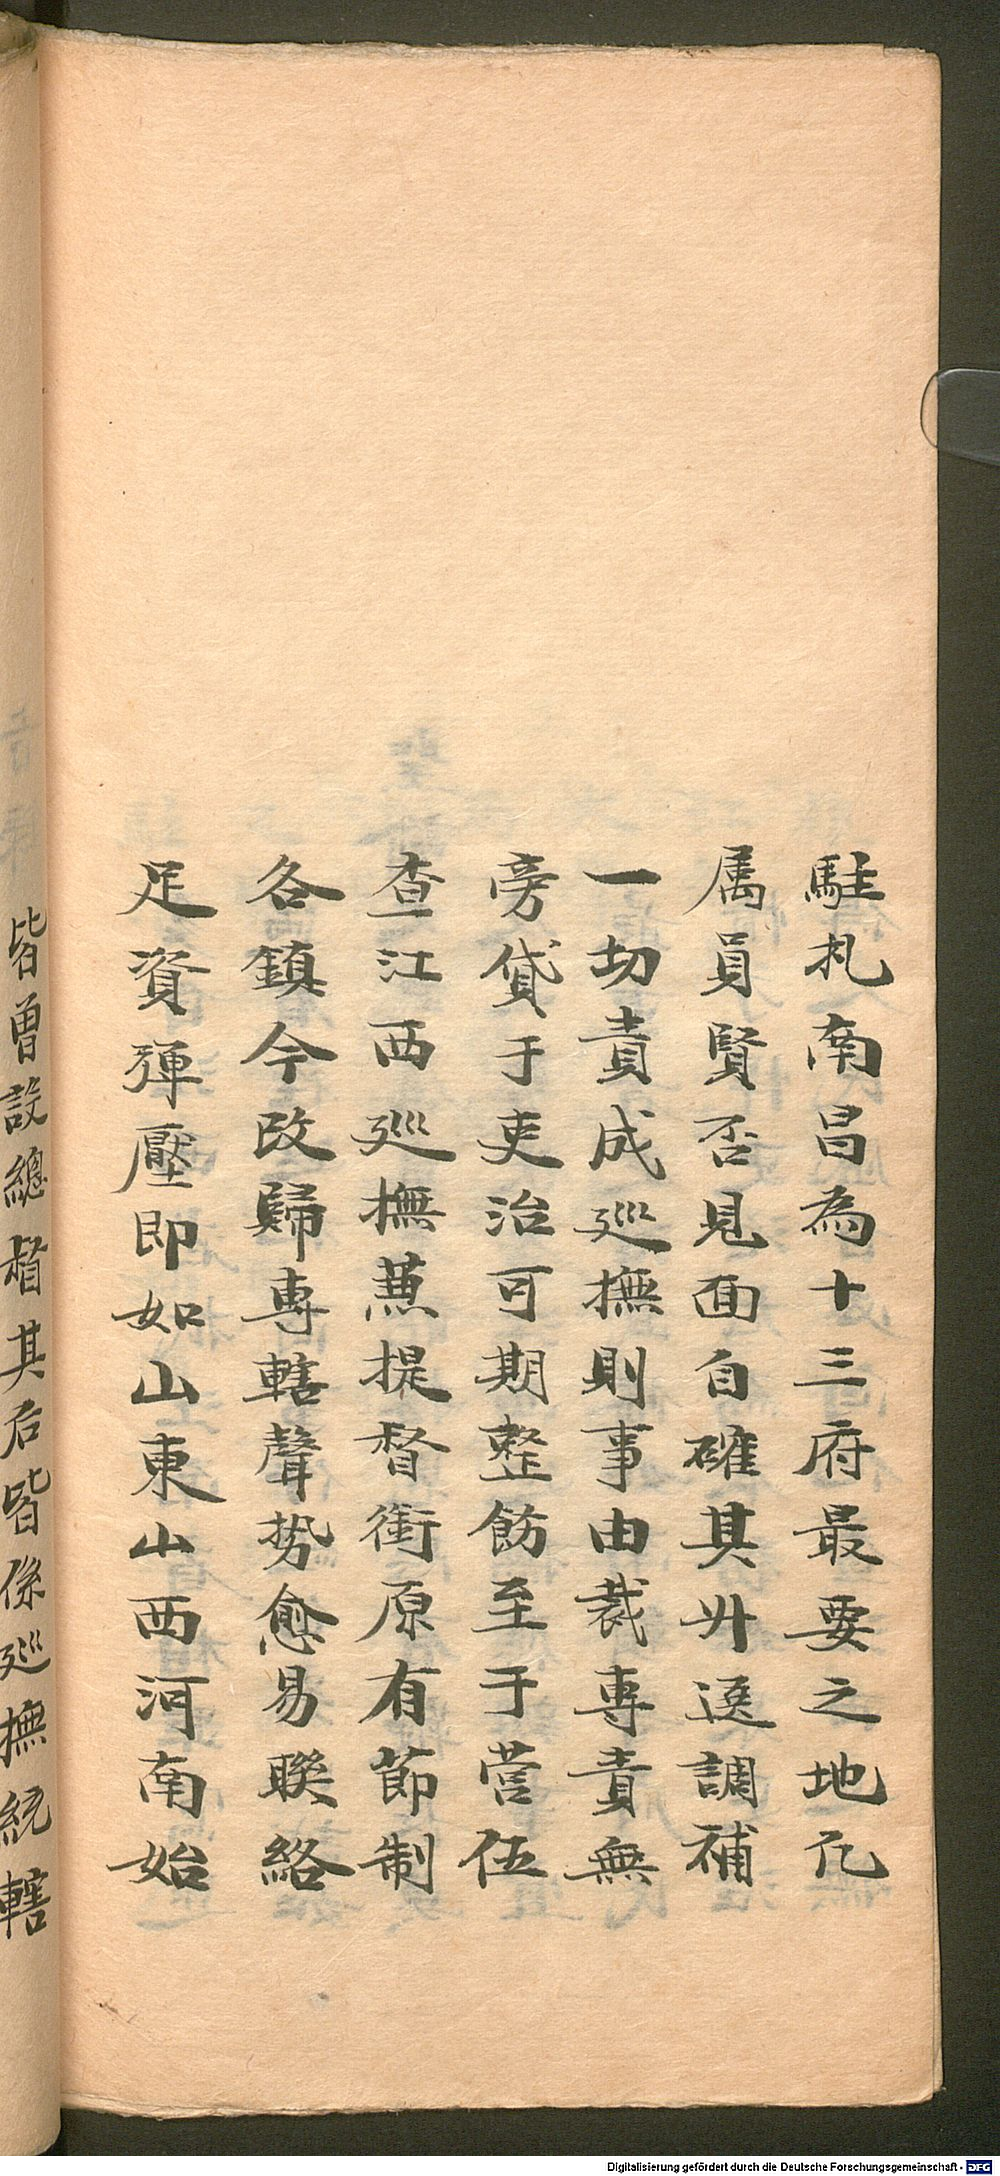 駐札南昌為十三府最要之地凡
属員賢否見面自確其升選調補
一切責成巡撫則事由裁專責無
旁貸于吏治可期整飭至于營伍
查江西巡撫蕙提督銜原有節制
各鎮今改歸專轄聲势愈易聯絡
足資彈壓即如山東山西河南始
皆曾設總督其后皆係巡撫統轄
Digitalisierung gefördert durch die Deutsche Forschungsgemeinschaft - DFG